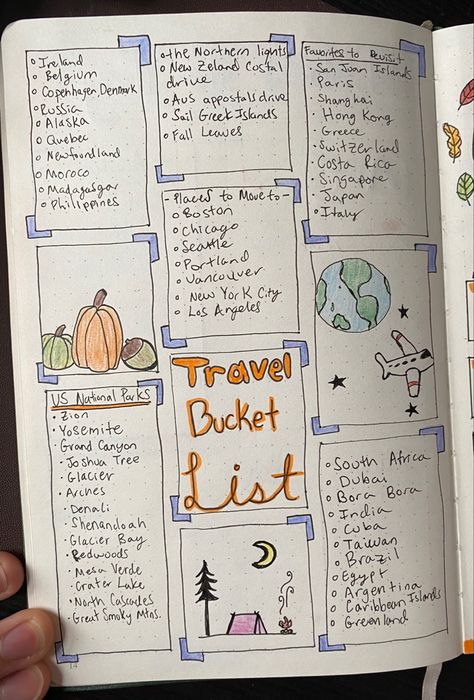 Ireland
Belgium
Copenhagen, Denmark
Russia
Alaska
Quebec
Newfoundland
Moroco
Madagasgar
Philippines
the Northern lights
New Zeland Costal
drive
Aus appostals drive
Sail Greek Islands
Fall Leaves
Favorites to Revisit
San Juan Islands
Paris
Shanghai
Hong Kong
Greece
Switzerland
Costa Rica
Singapore
Japan
Italy
- Places to Move to -
Boston
Chicago
Seattle
Portland
Vancouver
New York City
Los Angeles
Travel
Bucket
List
US National Parks
Zion
Yosemite
Grand Canyon
Joshua Tree
Glacier
Arches
Denali
Shenandoah
Glacier Bay
Redwoods
Mesa Verde
Crater Lake
North Cascades
Great Smoky Mtns.
South Africa
Dubai
Bora Bora
India
Cuba
Taiwan
Brazil
Egypt
Argentina
Caribbean Islands
Greenland